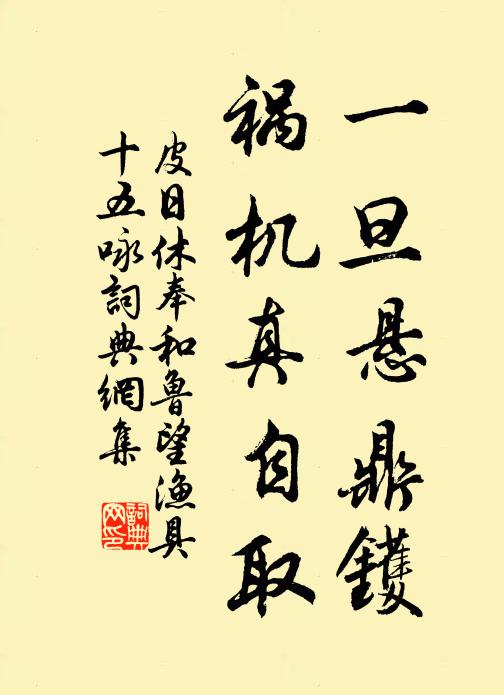 一旦悬鼎鑊
祸机真自取
皮日休奉和鲁望渔具
十五咏詞典網集
詞典网印